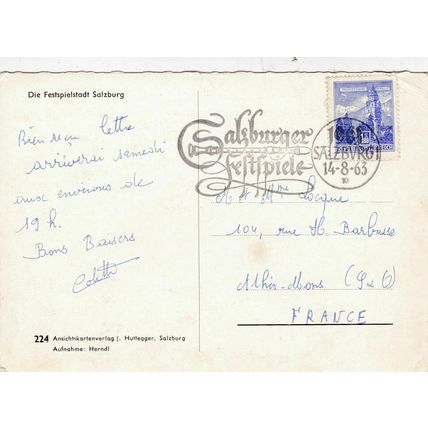 Die Festspielstadt Salzburg
Bien reçu lettre
arriverai samedi
aux environs de
19 h.
Bons Baisers
Colette
224 Ansichtkartenverlag J. Huttegger, Salzburg
Aufnahme: Herndl
Salzburger
Festspiele
SALZBURG 1
14-8-63
10
M et Mme
104, rue H. Barbusse
Athis-Mons (S & O)
FRANCE